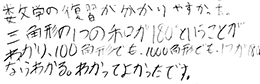 数学の復習が分かりやすかった。
三角形の1つの和が180°ということが
わかり、100角形でも、1000角形でも、1つが180
ならわかる。わかってよかったです。